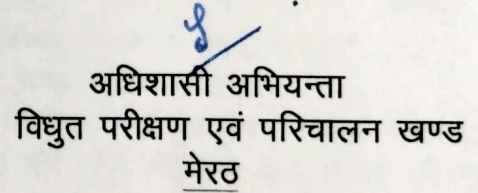 अधिशासी अभियन्ता
विधुत परीक्षण एवं परिचालन खण्ड
मेरठ